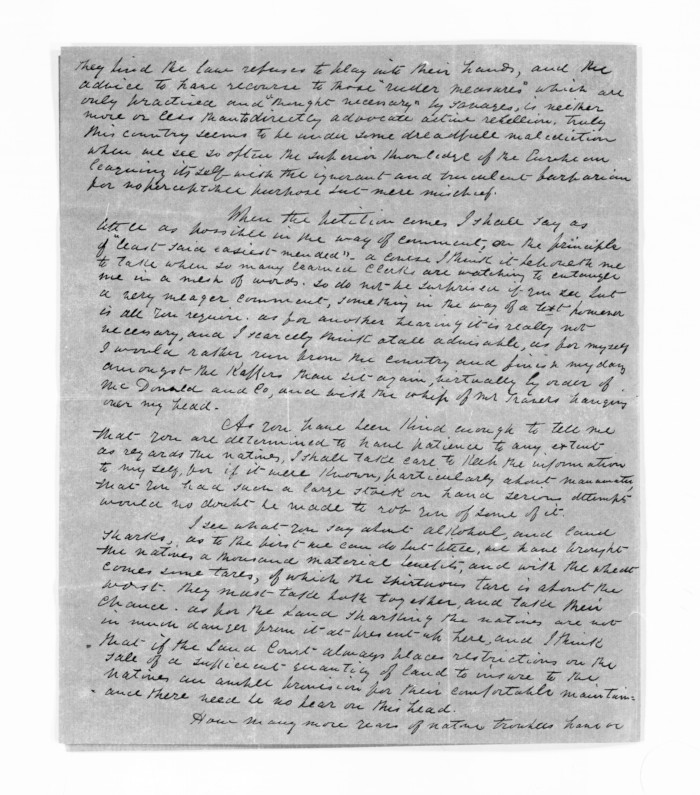 they find the law refuses to play into their hands, and the
advice to have recourse to those "ruder measures" which are
only practised and "thought necessary" by savages, is neither
more or less than to directly advocate active rebellion. Truly
this country seems to be under some dreadfull malediction
when we see so often the superior knowledge of the European
leaguing itself with the ignorant and truculent barbarian
for no perceptible purpose but mere mischief.
When the petition comes I shall say as
little as possible in the way of comment, on the principle
of "least said easiest mended" - a course I think it behoveth me
to take when so many learned Clerks are watching to entangle
me in a mesh of words. So do not be surprised if you see but
a very meager comment, something in the way of a text however
is all you require. as for another hearing it is really not
necessary, and I scarcely think atall advisable, as for myself
I would rather run from the country and finish my days
amongst the Kaffirs than sit again, virtually by order of
Mc Donald and Co, and with the whip of Mr Travers hanging
over my head.
As you have been kind enough to tell me
that you are determined to have patience to any extent
as regards the natives, I shall take care to keep the information
to myself, for if it were known, particularly about
that you had such a large stock on hand serious attempts
would no doubt be made to rob you of some of it.
I see what you say about alkohol, and land
sharks, as to the first we can do but little, we have brought
the natives a thousand material benefits, and with the wheat
comes some tares, of which the spirituous tare is about the
worst. they must take both together, and take their
chance. as for the land sharking the natives are not
in much danger from it at present up here, and I think
that if the Land Court always places restrictions on the
sale of a sufficient quantity of land to insure to the
natives an ample provision for their comfortable maintain=
ance there need be no fear on this head.
How many more years of native troubles have we